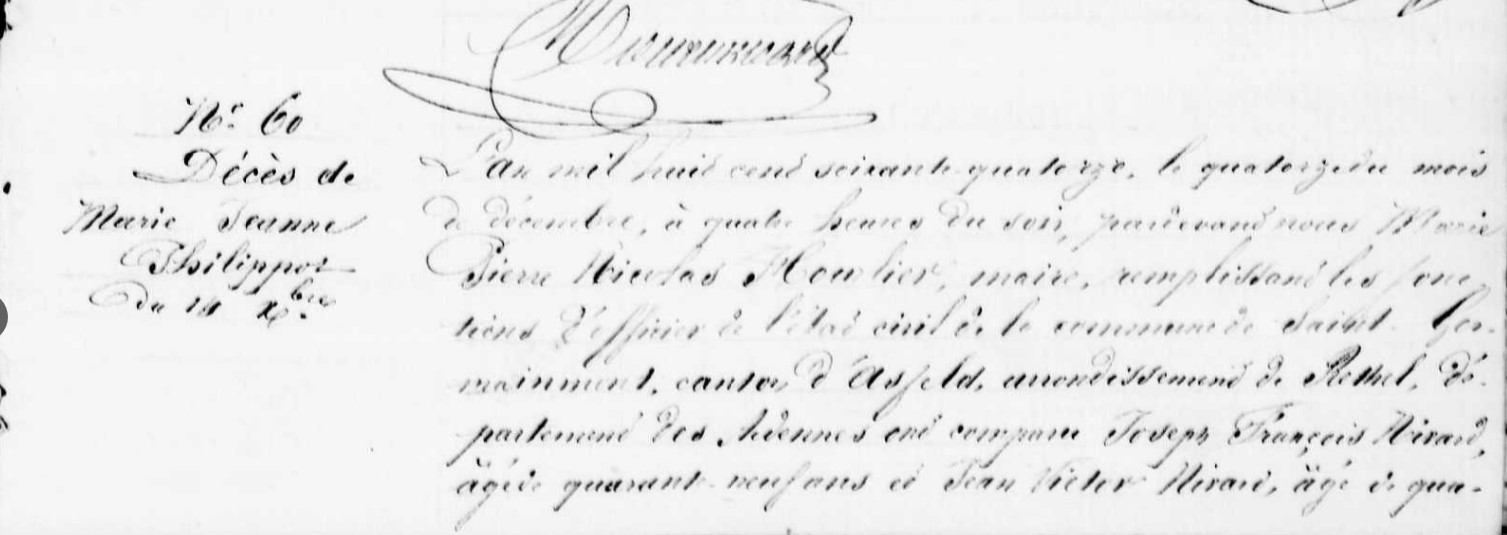 Nº 60
Décès de
Marie Jeanne
Philippot
du 14 Xbre
L'an mil huit cent soixante-quatorze, le quatorze du mois
de décembre, à quatre heures du soir, pardevant nous Marie
Pierre Nicolas, maire, remplissant les fonc
tions d'officier de l'état civil de la commune de Saint-Ger-
mainmont, canton d'Asfeld, arrondissement de Rethel, dé-
partement des Ardennes ont comparu Joseph François Nivard,
âgé de quarante-neuf ans et Jean Victor Nivard, âgé de qua-